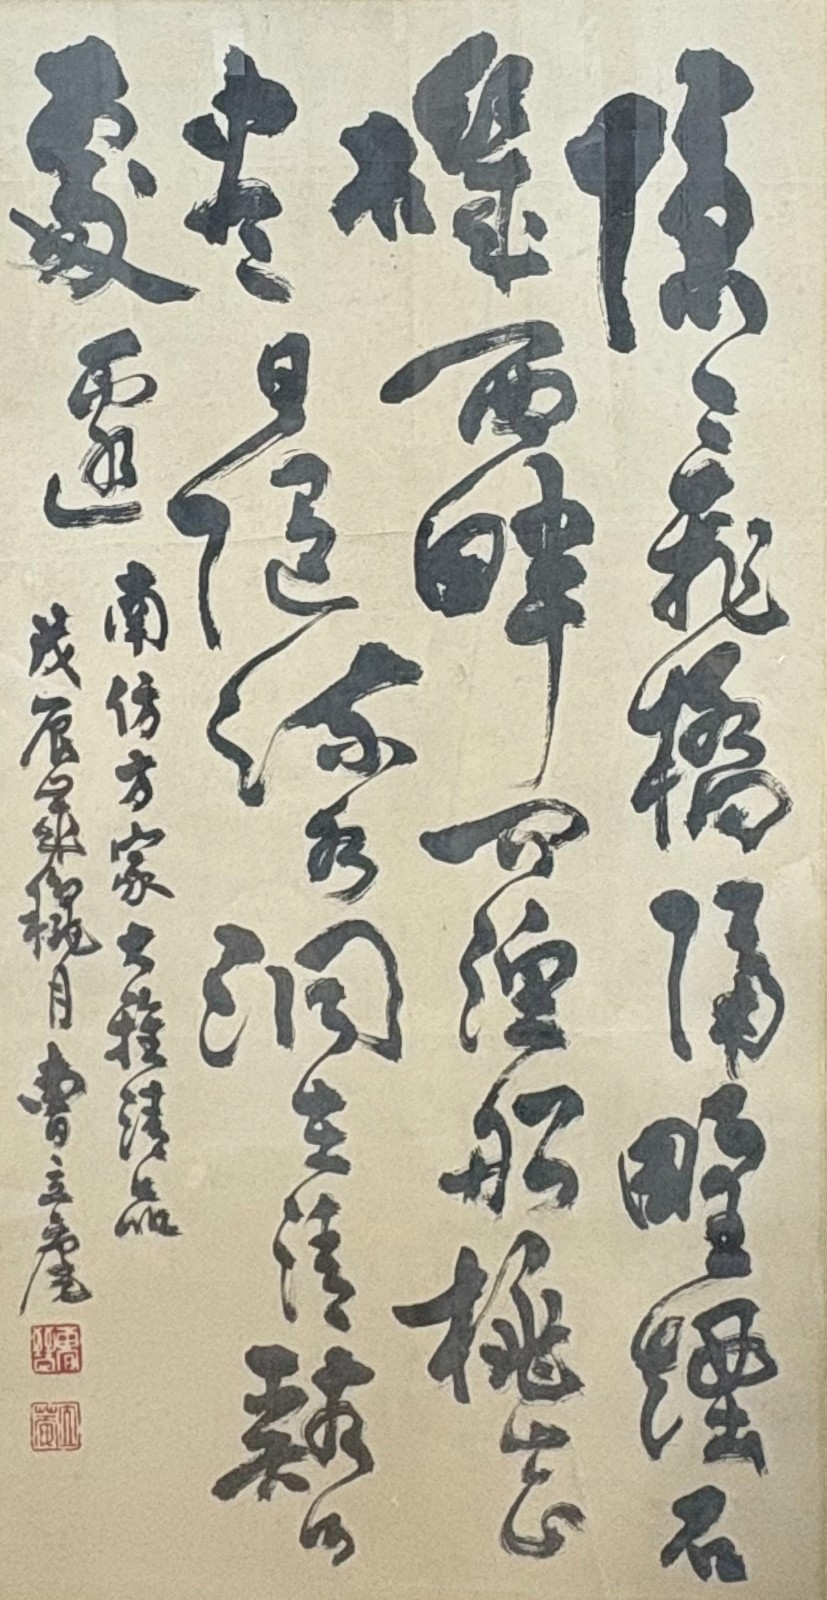 隱〻飛橋隔野煙石
磯西畔問漁船桃花
盡日隨流水洞在清谿何
處邊
南仿方家大雅清品
戊辰嵗月曹立庵